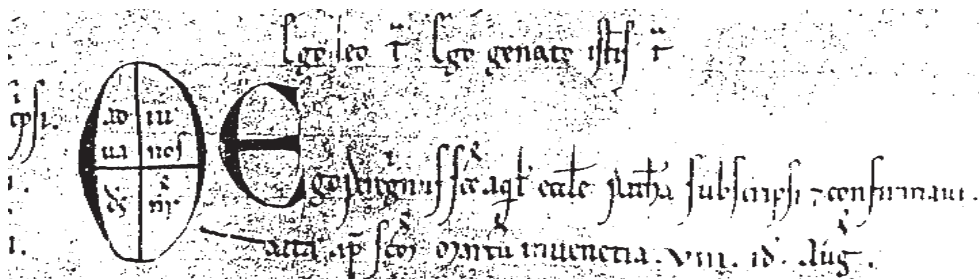 Ego leo t̄. Ego genato istis t̄
cpsi.
ad iu
ua nos
ds nr̄
Ego peregrinus sc̄e aql' eccl'e patha subscripsi ⁊ confirmaui.
apd̄ sc̄m marcū inuenetia. VIII. id'. Aug̃.